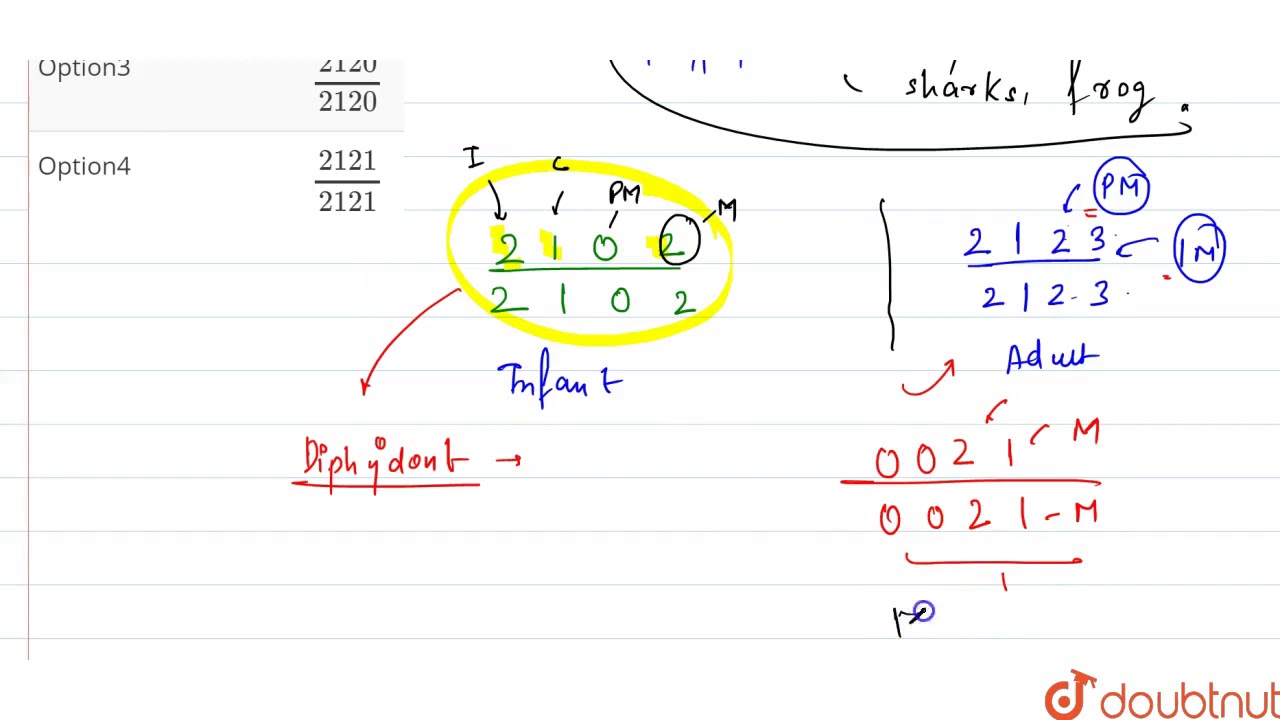 Option3
2120
2120
sharks, frog.
Option4
2121
2121
I C PM M
2 1 0 2
2 1 0 2
Infant
PM
2 1 2 3
M
2 1 2 3
Adult
Diphyodont →
0 0 2 1 M
0 0 2 1 - M
doubtnut